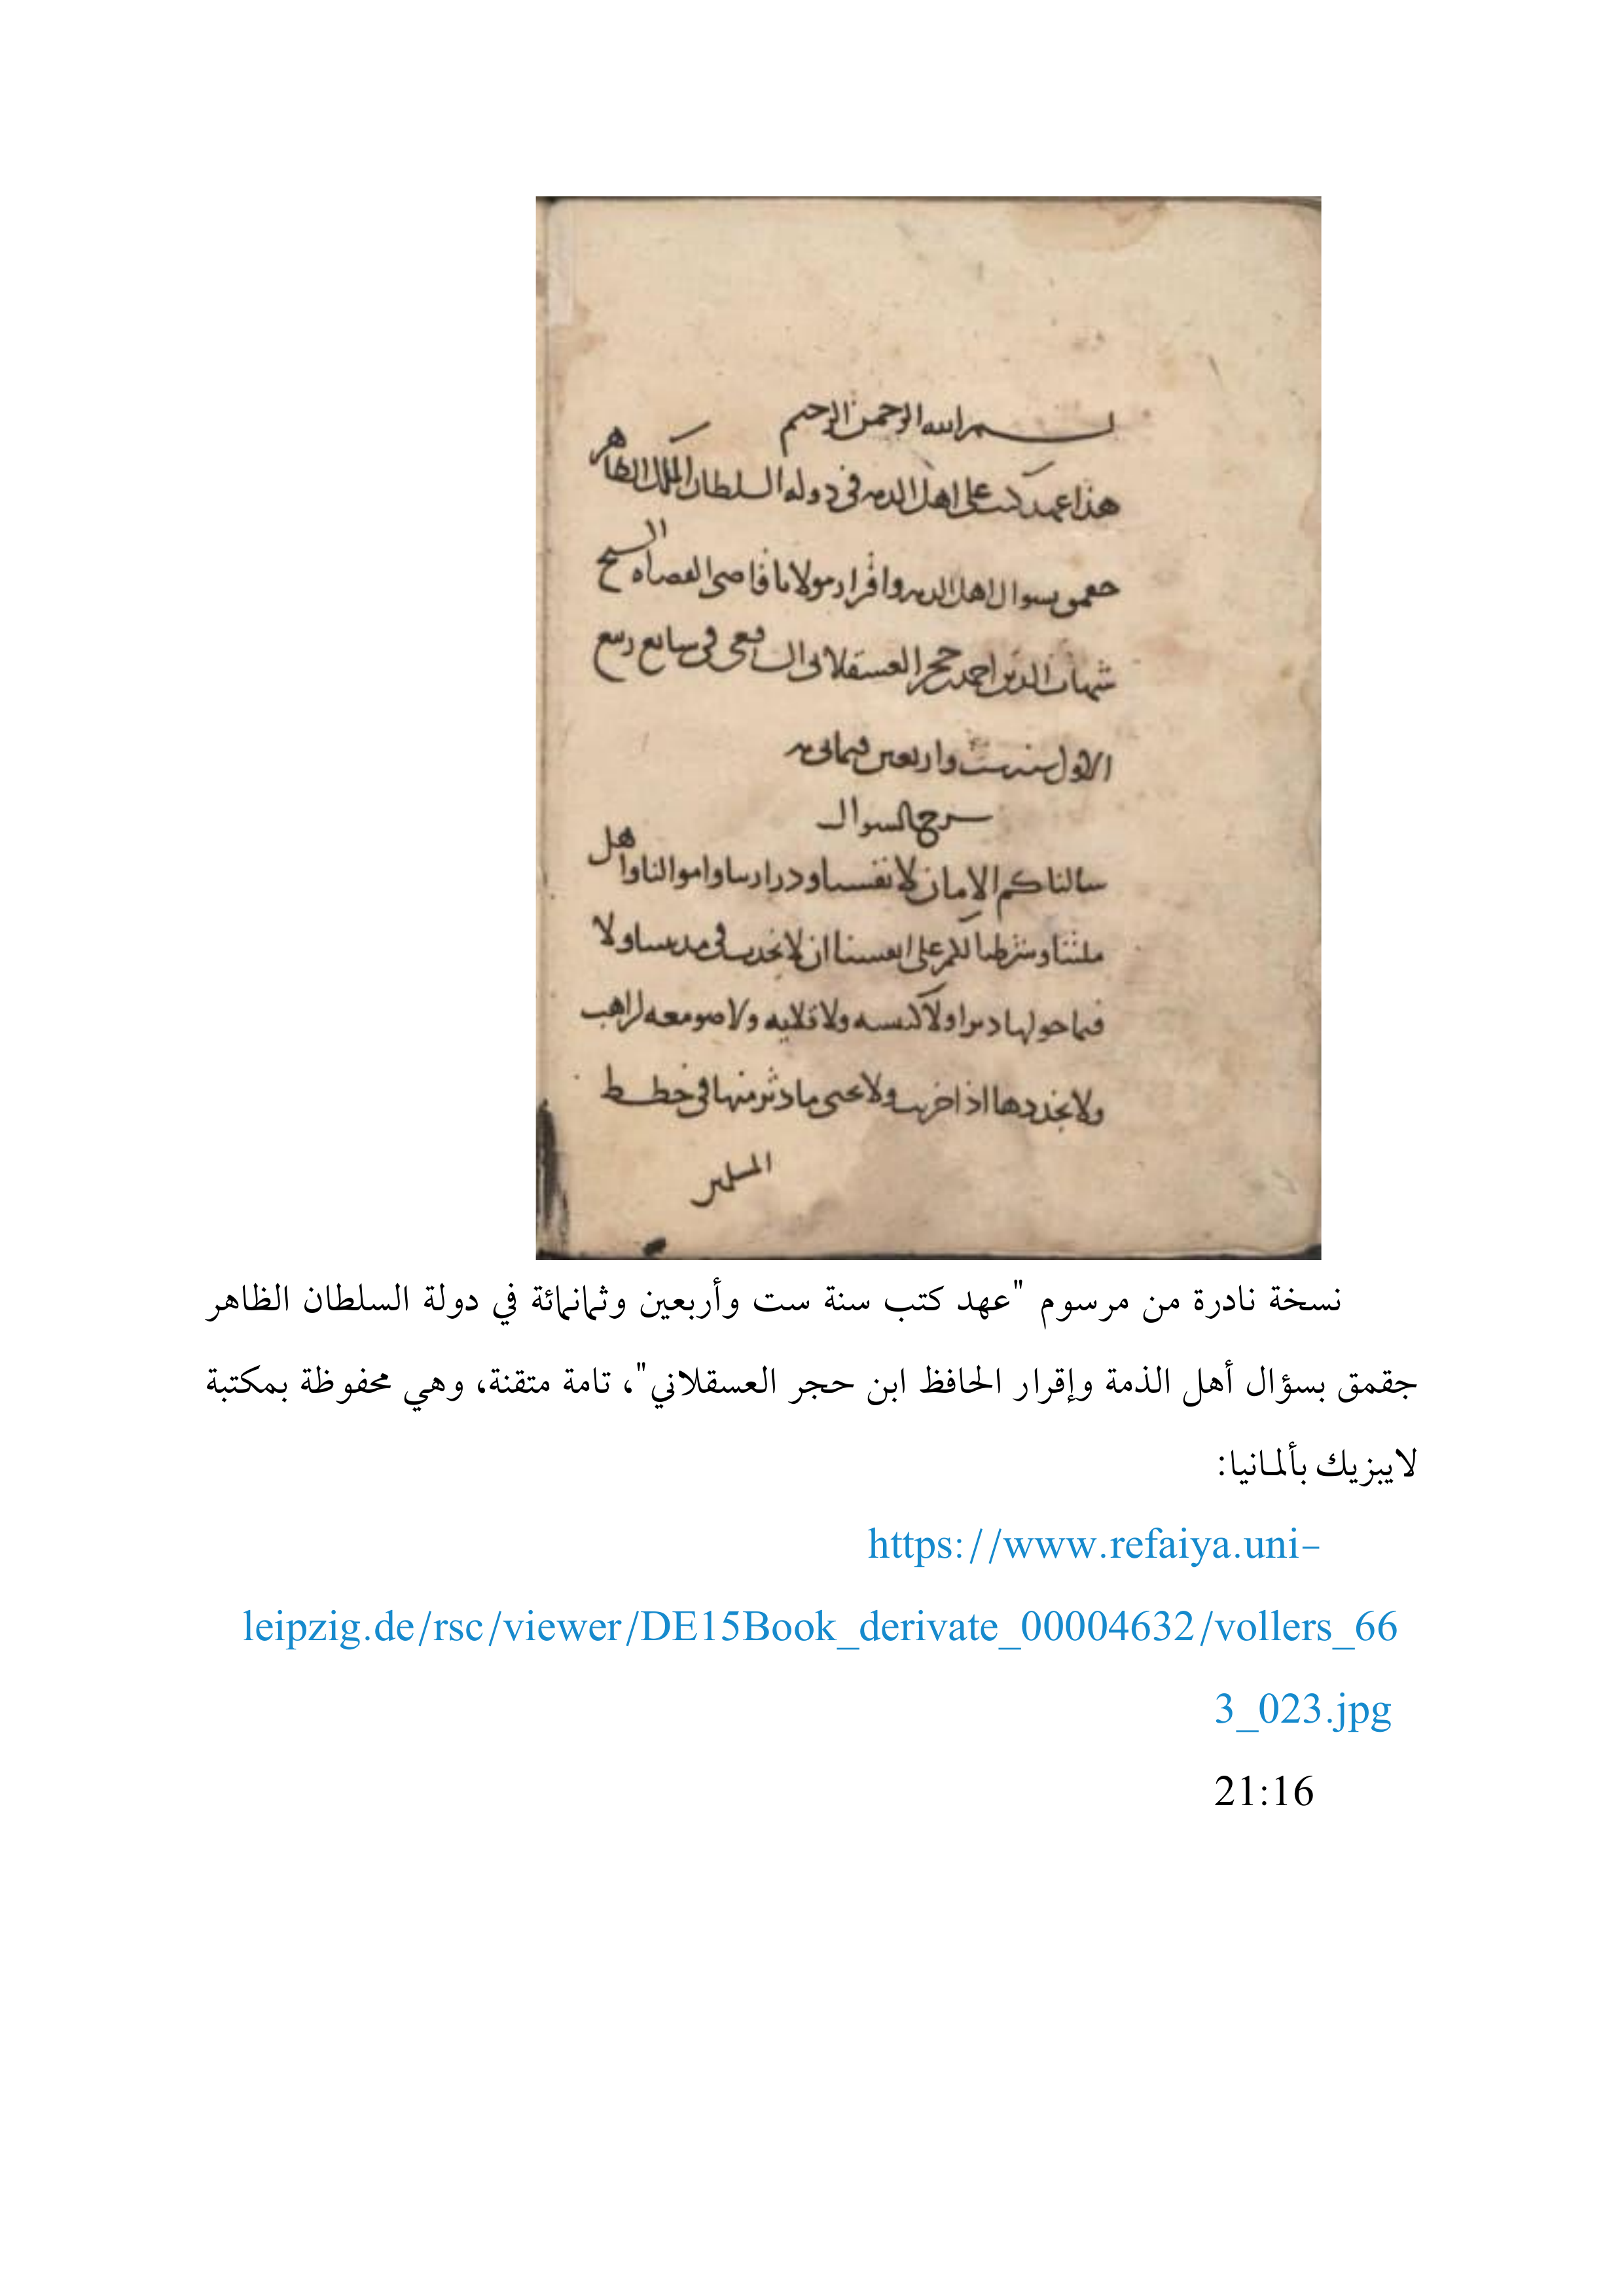 بسم الله الرحمن الرحيم
هذا عهد كتب على اهل الدمه فى دوله السلطان الملك الظاهر
جقمق بسوال اهل الدمه واقرار مولانا قاضى القضاه الشيخ
شهاب الدين احمد حجر العسقلانى الشافعى فى سابع ربيع
الاول سنه ست واربعين وثمانى مه
شرح السوال
سالناكم الامان لانفسنا ودرارينا واموالنا واهل
ملتنا وشرطنا لكم على انفسنا ان لا نحدث فى مدينتنا ولا
فيما حولها ديرا ولا كنيسه ولا قلايه ولا صومعه لراهب
ولا نجددها اذا خربت ولا نحيى ما دثر منها فى خطط
المسلمين
نسخة نادرة من مرسوم "عهد كتب سنة ست وأربعين وثمانمائة في دولة السلطان الظاهر
جقمق بسؤال أهل الذمة وإقرار الحافظ ابن حجر العسقلاني"، تامة متقنة، وهي محفوظة بمكتبة
لايبزيك بألمانيا:
https://www.refaiya.uni-
leipzig.de/rsc/viewer/DE15Book_derivate_00004632/vollers_66
3_023.jpg
21:16